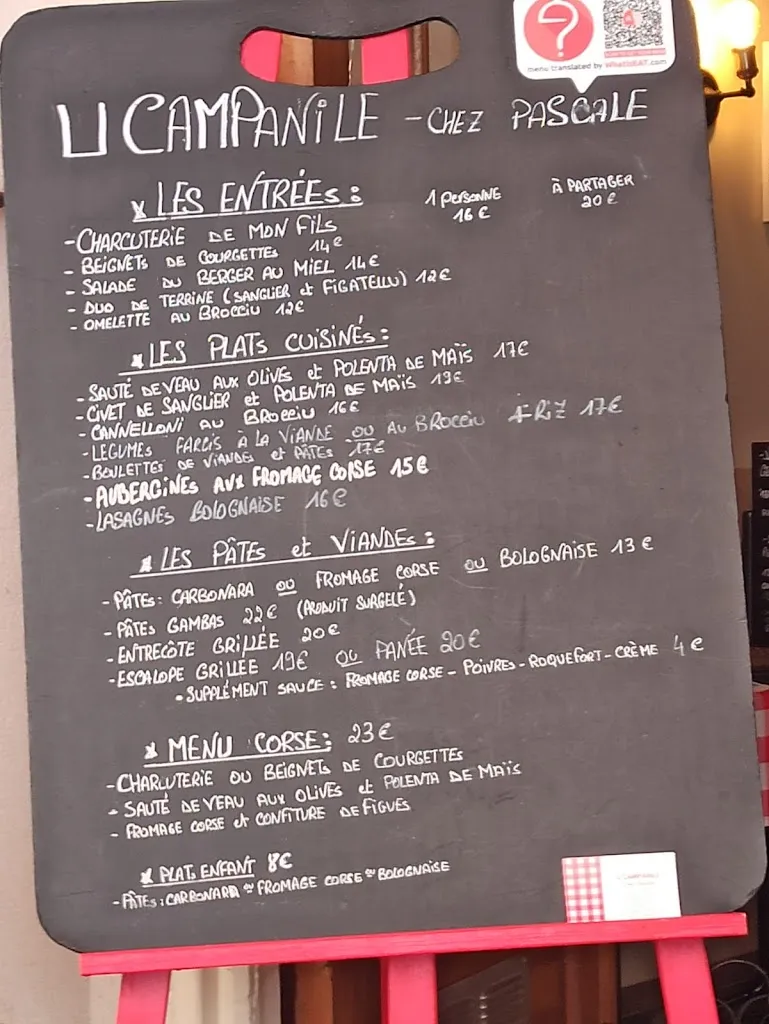 menu translated by WhatToEAT.com
U CAMPANILE - CHEZ PASCALE
* LES ENTRÉES : 1 PERSONNE À PARTAGER
16 € 20 €
- CHARCUTERIE DE MON FILS
- BEIGNETS DE COURGETTES 14€
- SALADE DU BERGER AU MIEL 14€
- DUO DE TERRINE (SANGLIER et FIGATELLU) 12€
- OMELETTE AU BROCCIU 12€
* LES PLATS CUISINÉS :
- SAUTÉ DE VEAU AUX OLIVES et POLENTA DE MAÏS 17€
- CIVET DE SANGLIER et POLENTA DE MAÏS 19€
- CANNELLONI AU BROCCIU 16€
- LEGUMES FARCIS À LA VIANDE OU AU BROCCIU + RIZ 17€
- BOULETTES DE VIANDES et PÂTES 17€
- AUBERGINES AUX FROMAGE CORSE 15€
- LASAGNES BOLOGNAISE 16€
* LES PÂTES et VIANDES :
- PÂTES : CARBONARA OU FROMAGE CORSE OU BOLOGNAISE 13€
- PÂTES GAMBAS 22€ (PRODUIT SURGELÉ)
- ENTRECÔTE GRILLÉE 20€
- ESCALOPE GRILLÉE 19€ OU PANÉE 20€
• SUPPLÉMENT SAUCE : FROMAGE CORSE - POIVRES - ROQUEFORT - CRÈME 4€
* MENU CORSE : 23€
- CHARCUTERIE OU BEIGNETS DE COURGETTES
- SAUTÉ DE VEAU AUX OLIVES et POLENTA DE MAÏS
- FROMAGE CORSE et CONFITURE DE FIGUES
* PLAT ENFANT 8€
- PÂTES : CARBONARA OU FROMAGE CORSE OU BOLOGNAISE
U CAMPANILE